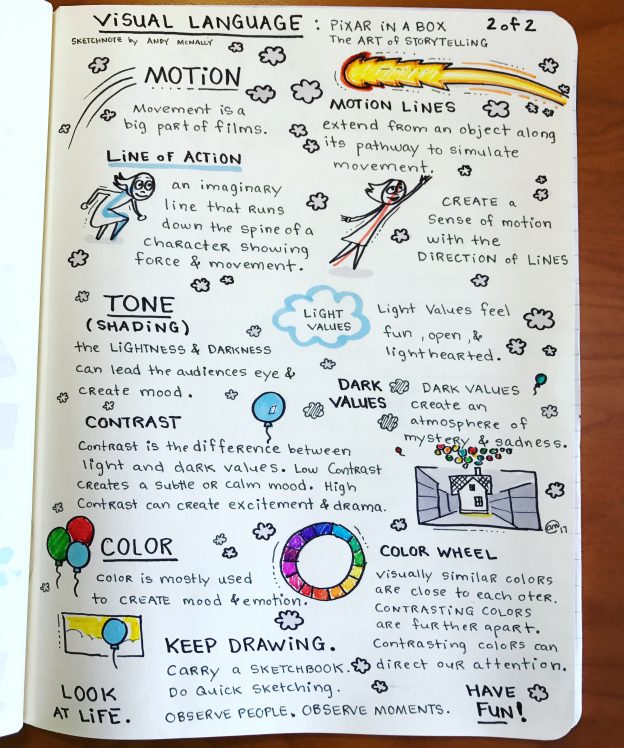 VISUAL LANGUAGE : PIXAR IN A BOX 2 of 2
SKETCHNOTE by ANDY MCNALLY The ART of STORYTELLING
MOTION
Movement is a
big part of films.
MOTION LINES
extend from an object along
its pathway to simulate
movement.
LINE OF ACTION
an imaginary
line that runs
down the spine of a
character showing
force & movement.
CREATE a
Sense of motion
with the
DIRECTION of LINES
TONE
(SHADING)
the LIGHTNESS & DARKNESS
can lead the audiences eye &
create mood.
LIGHT
VALUES
Light Values feel
fun, open, &
lighthearted.
DARK
VALUES
DARK VALUES
create an
atmosphere of
mystery & sadness.
CONTRAST
Contrast is the difference between
light and dark values. Low Contrast
creates a subtle or calm mood. High
Contrast can create excitement & drama.
am 17
COLOR
Color is mostly used
to CREATE mood & emotion.
COLOR WHEEL
Visually similar colors
are close to each oter.
CONTRASTING COLORS
are further apart.
Contrasting colors can
direct our attention.
KEEP DRAWING.
CARRY a SKETCHBOOK.
Do Quick Sketching.
OBSERVE PEOPLE. OBSERVE MOMENTS.
LOOK
AT LIFE.
HAVE
FUN!